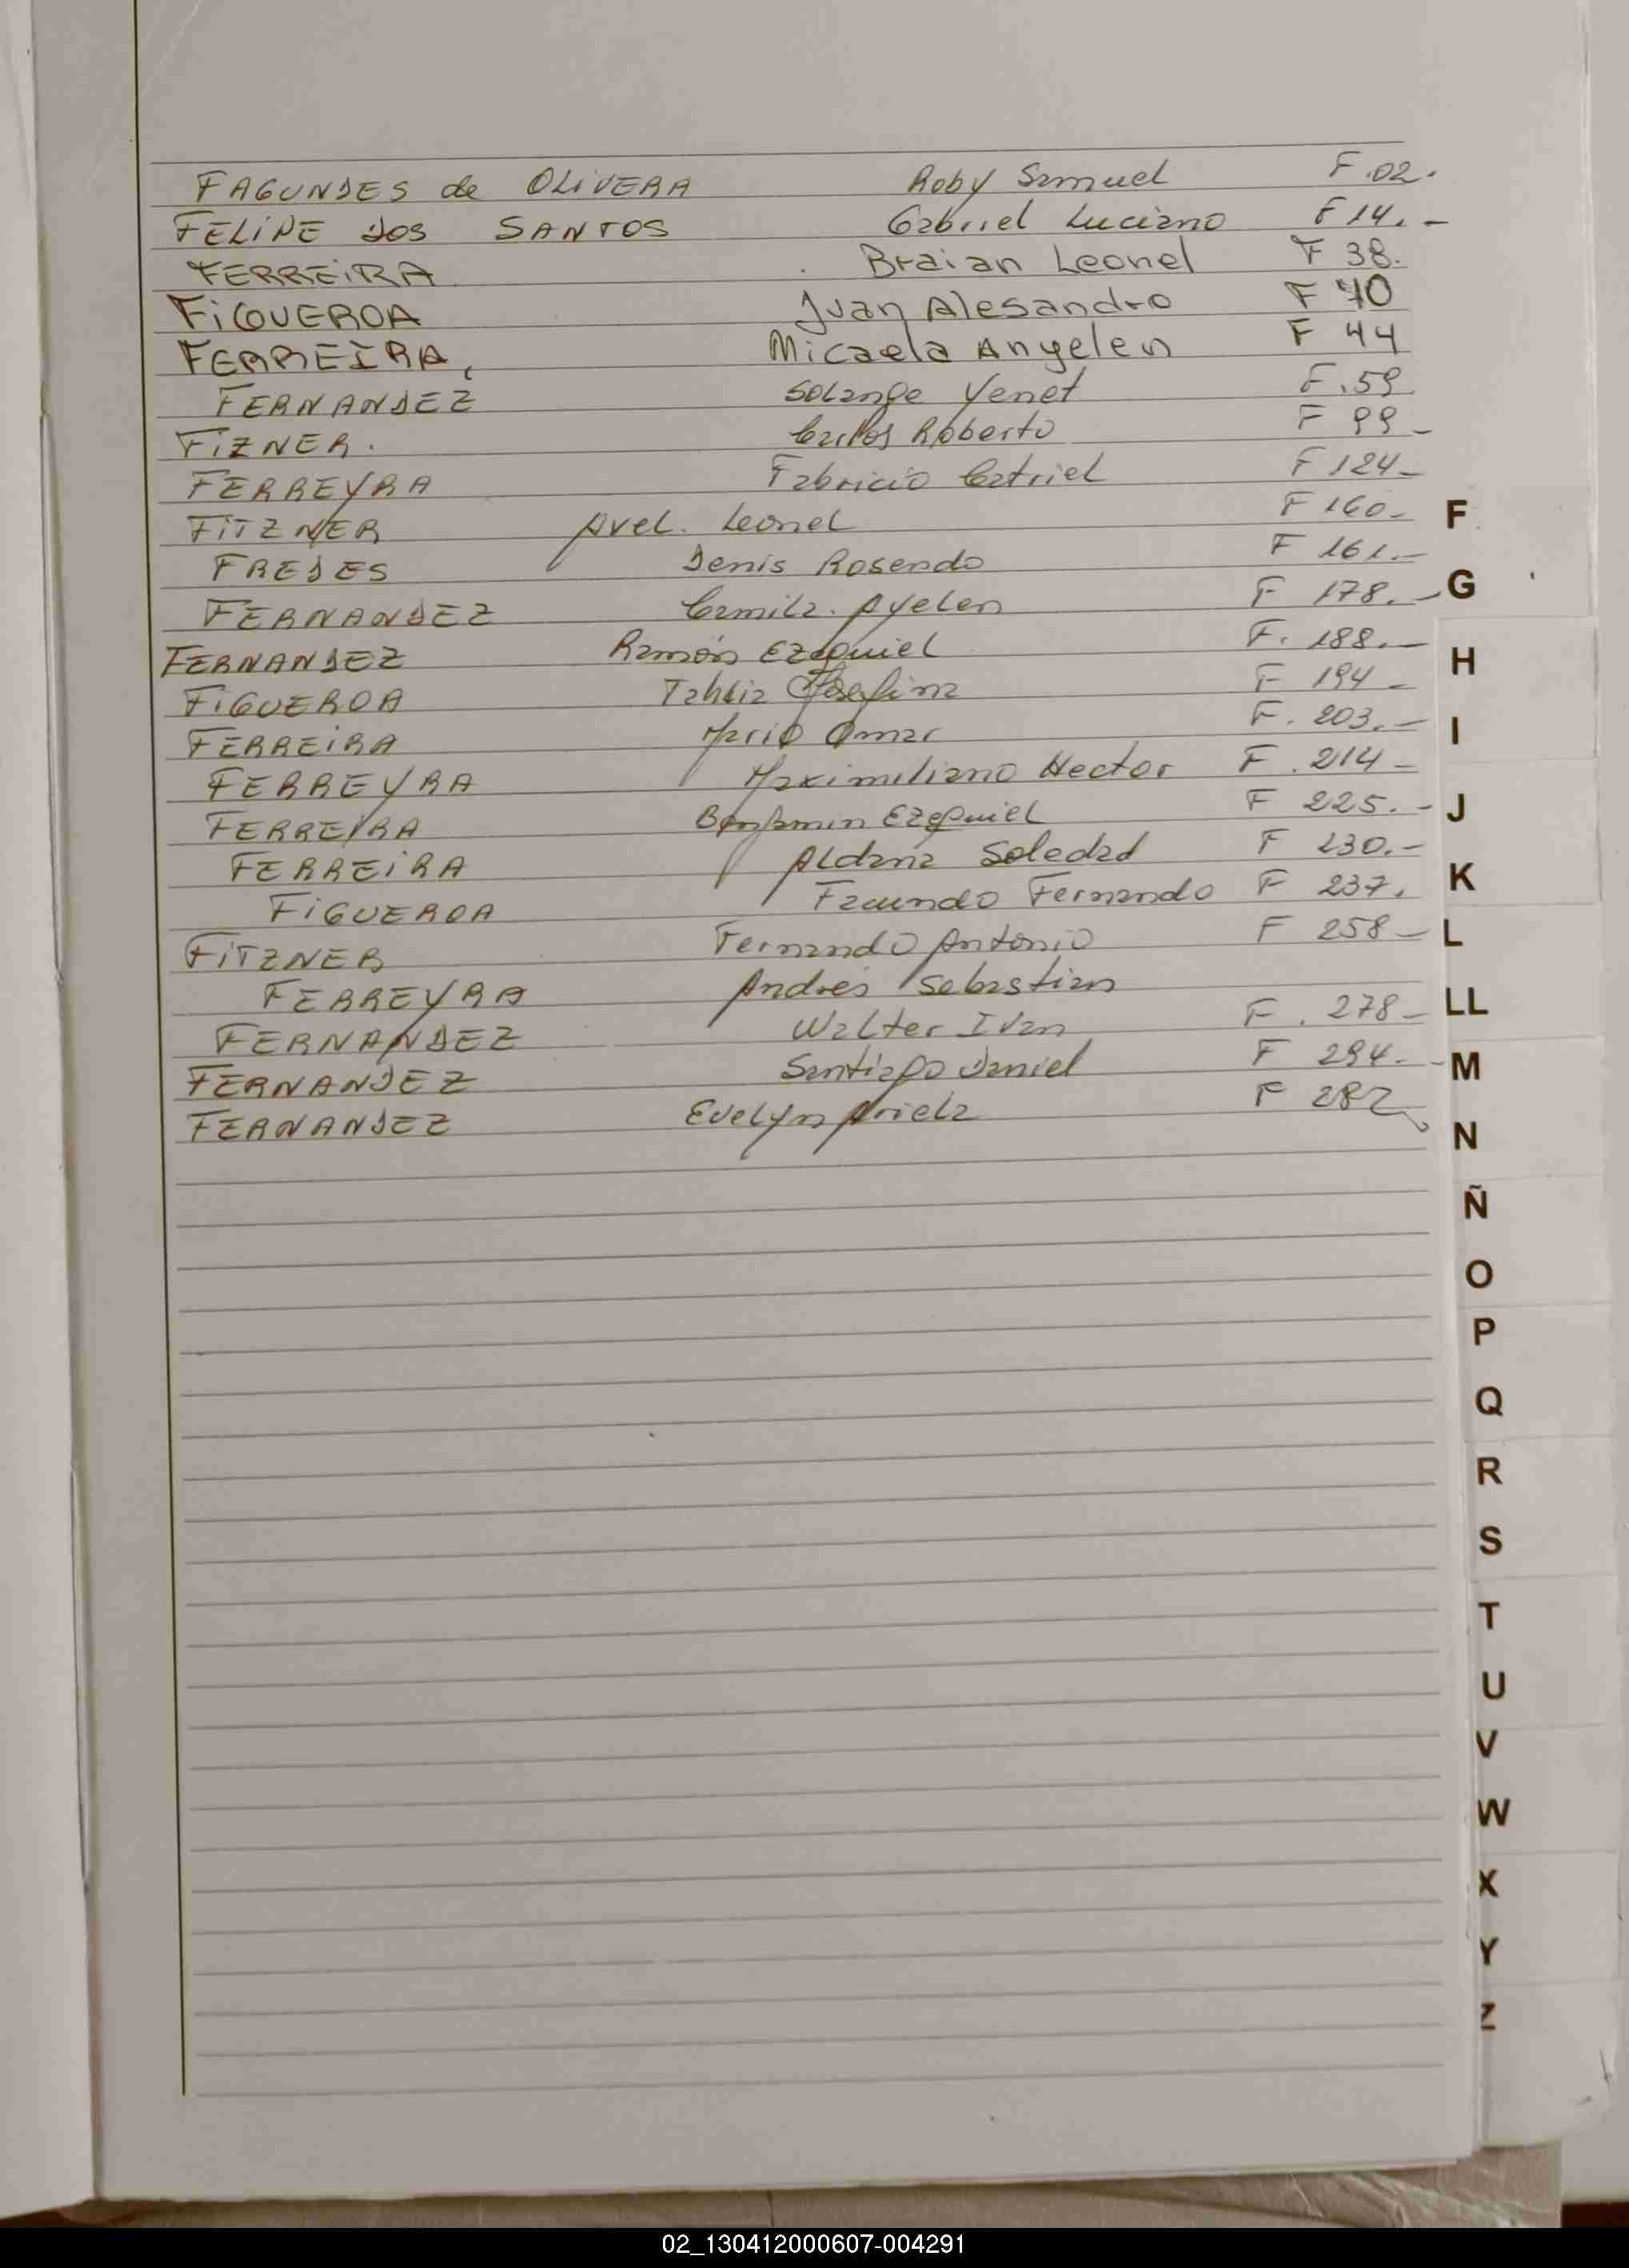 FAGUNDES de OLIVERA Roby Samuel F.02.
FELIPE dos SANTOS Gabriel Luciano F 14.-
FERREiRA Braian Leonel F 38.
FiGUEROA Juan Alesandro F 40
FERREIRA, Micaela Angelen F 44
FERNANDEZ Solange Yenet F.59
FiZNER. Carlos Roberto F 99-
FERREYRA Fabricio Catriel F 124-
FiTZNER Axel. Leonel F 160-
FREDES Denis Rosendo F 161.-
FERNANDEZ Camila. Ayelen F 178.-
FERNANDEZ Ramón Ezequiel F. 188.-
FiGUEROA Josefina F 194-
FERREiRA Mario Omar F. 203.-
FERREYRA Maximiliano Hector F. 214-
FERREIRA Benjamin Ezequiel F 225.-
FERREiRA Aldana Soledad F 230.-
FiGUEROA Facundo Fernando F 237.
FiTZNER Fernando Antonio F 258-
FERREYRA Andrés Sebastian
FERNANDEZ Walter Ivan F. 278-
FERNANDEZ Santiago Daniel F 294.-
FERNANDEZ Evelyn Ariela F 282
F
G
H
I
J
K
L
LL
M
N
Ñ
O
P
Q
R
S
T
U
V
W
X
Y
Z
02_130412000607-004291